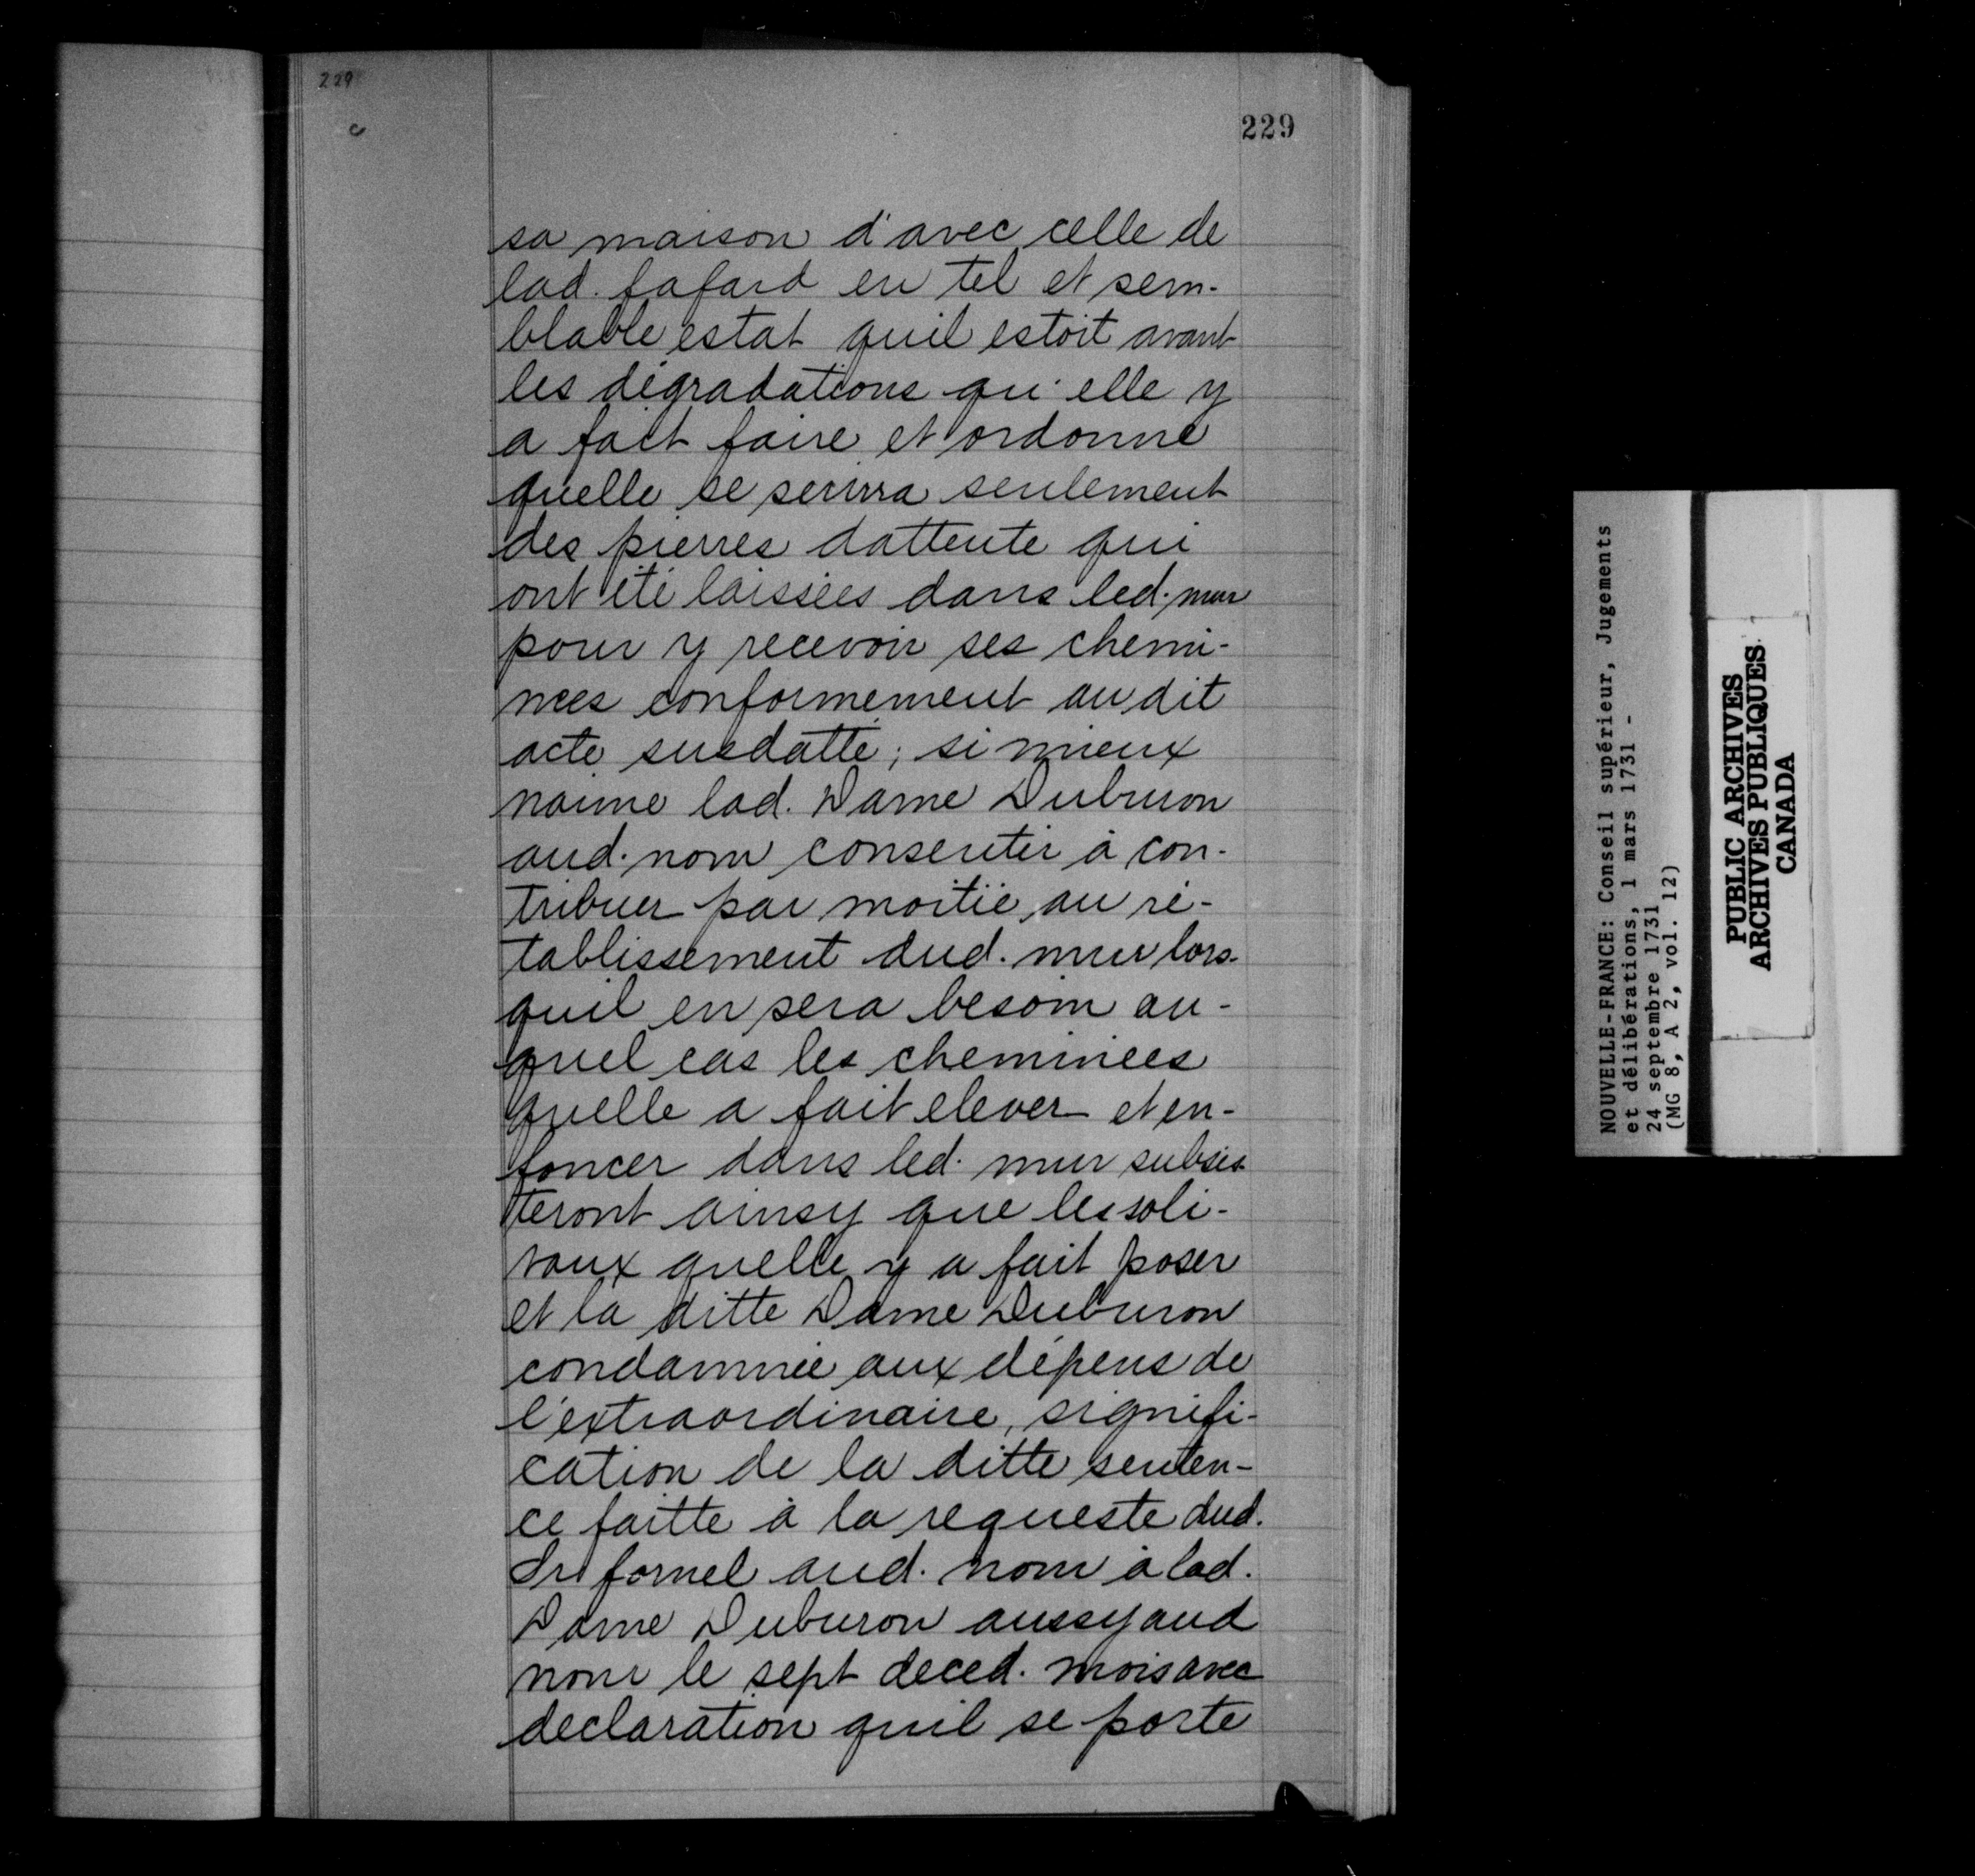 229
c
229
sa maison d'avec celle de
lad. fafard en tel et sem-
blable estat quil estoit avant
les dégradations qu'elle y
a fait faire et ordonné
quelle se servira seulement
des pierres dattente qui
ont été laissées dans led. mur
pour y recevoir ses chemi-
nees conformement au dit
acte susdatté; si mieux
naime lad. Dame Duburon
aud. nom consentir à con-
tribuer par moitié au ré-
tablissement dud. mur lors-
quil en sera besoin au-
quel cas les cheminées
quelle a fait elever et en-
foncer dans led. mur subsis-
teront ainsy que les soli-
vaux quelle y a fait poser
et la ditte Dame Duburon
condamnée aux dépens de
l'extraordinaire, signifi-
cation de la ditte senten-
ce faitte à la requeste dud.
Sr fornel aud. nom à lad.
Dame Duburon aussy aud
nom le sept deced. mois avec
declaration quil se porte
NOUVELLE-FRANCE: Conseil supérieur, Jugements
et délibérations, 1 mars 1731 -
24 septembre 1731
(MG 8, A 2, vol. 12)
PUBLIC ARCHIVES
ARCHIVES PUBLIQUES
CANADA